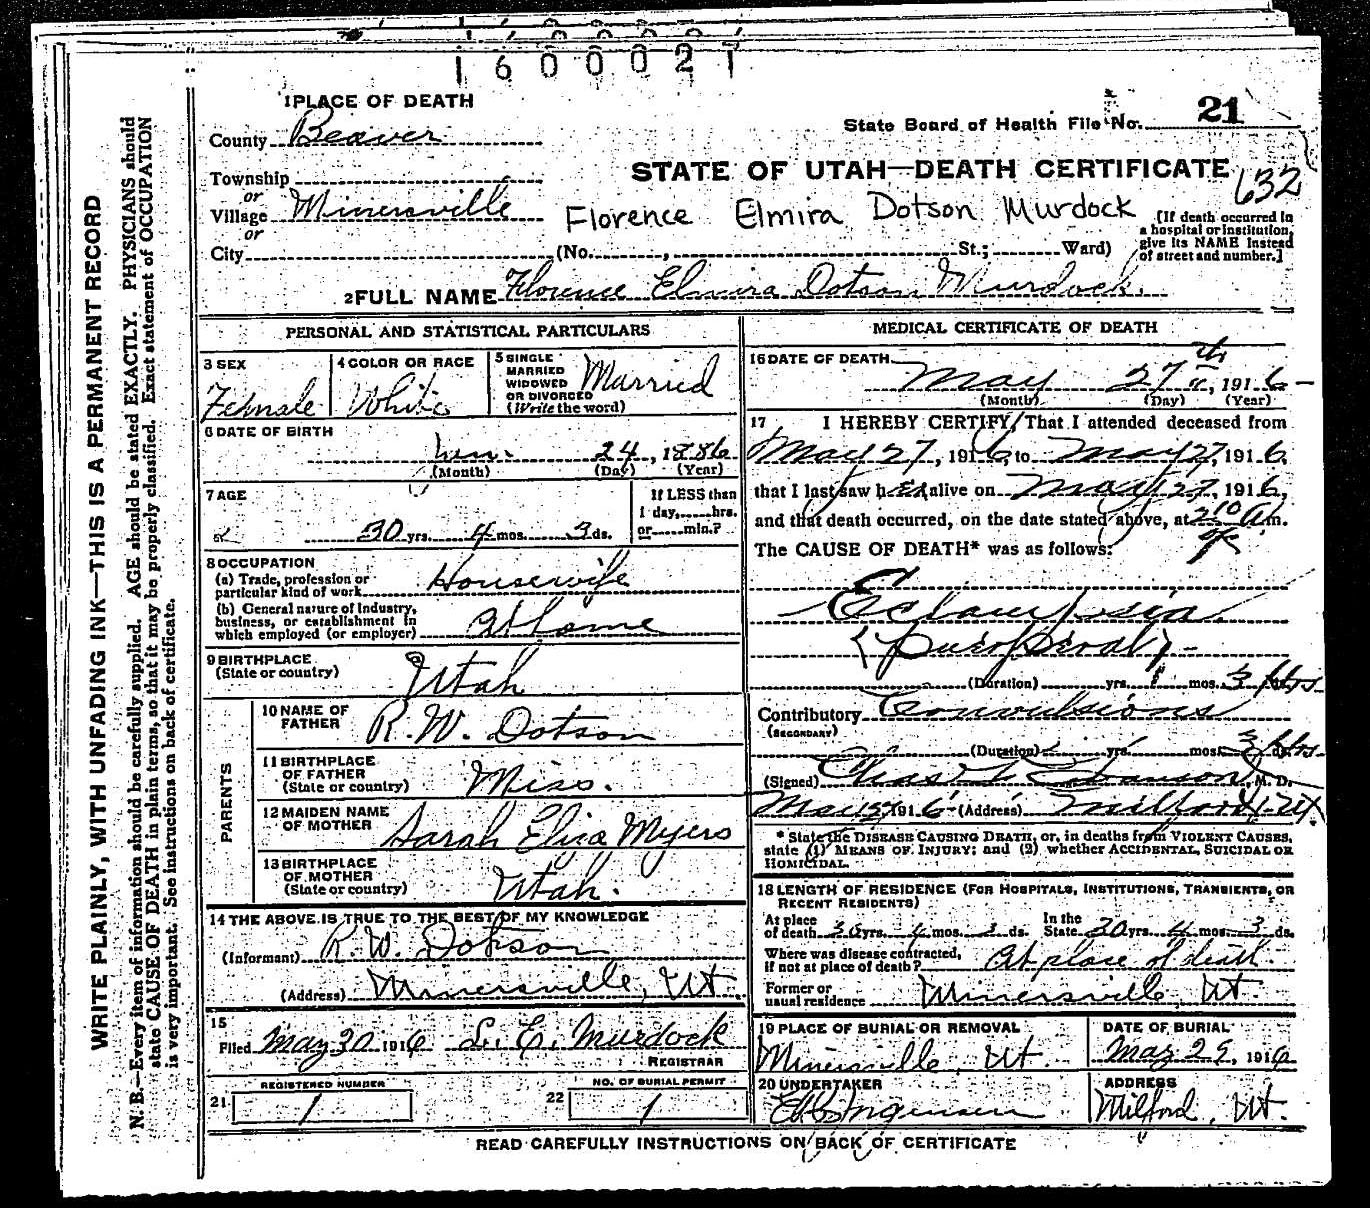 1600021
1 PLACE OF DEATH
County Beaver
State Board of Health File No. 21
STATE OF UTAH—DEATH CERTIFICATE
632
Township
or
Village Minersville
Florence Elmira Dotson Murdock
[If death occurred in a hospital or institution, give its NAME instead of street and number.]
or
City (No. , St.; Ward)
2 FULL NAME Florence Elmira Dotson Murdock.
PERSONAL AND STATISTICAL PARTICULARS
3 SEX
Female
4 COLOR OR RACE
White
5 SINGLE
MARRIED
WIDOWED
OR DIVORCED
(Write the word)
Married
6 DATE OF BIRTH
24, 1886
(Month) (Day) (Year)
7 AGE
30 yrs. 4 mos. 3 ds.
If LESS than
1 day, hrs.
or min.?
8 OCCUPATION
(a) Trade, profession or
particular kind of work Housewife
(b) General nature of industry,
business, or establishment in
which employed (or employer) At Home
9 BIRTHPLACE
(State or country) Utah
PARENTS
10 NAME OF
FATHER R. W. Dotson
11 BIRTHPLACE
OF FATHER
(State or country) Miss.
12 MAIDEN NAME
OF MOTHER Sarah Eliza Myers
13 BIRTHPLACE
OF MOTHER
(State or country) Utah.
14 THE ABOVE IS TRUE TO THE BEST OF MY KNOWLEDGE
(Informant) R. W. Dotson
(Address) Minersville, Ut
15
Filed May 30 1916 L. E. Murdock
REGISTRAR
REGISTERED NUMBER
21 1
NO. OF BURIAL PERMIT
22 1
MEDICAL CERTIFICATE OF DEATH
16 DATE OF DEATH
May 27th, 1916
(Month) (Day) (Year)
17 I HEREBY CERTIFY, That I attended deceased from
May 27, 1916, to May 27, 1916,
that I last saw her alive on May 27, 1916,
and that death occurred, on the date stated above, at 2 10 A m.
The CAUSE OF DEATH* was as follows:
Eclampsia
(Puerperal)
(Duration) yrs. mos. 3 hrs
Contributory Convulsions
(SECONDARY)
(Duration) yrs. mos. 3 hrs
(Signed) Chas M. D.
May 27, 1916 (Address) Milford, Ut
* State the DISEASE CAUSING DEATH, or, in deaths from VIOLENT CAUSES,
state (1) MEANS OF INJURY; and (2) whether ACCIDENTAL, SUICIDAL OR
HOMICIDAL.
18 LENGTH OF RESIDENCE (FOR HOSPITALS, INSTITUTIONS, TRANSIENTS, OR
RECENT RESIDENTS)
At place
of death 30 yrs. 4 mos. 3 ds.
In the
State 30 yrs. 4 mos. 3 ds.
Where was disease contracted,
if not at place of death? At place of death
Former or
usual residence Minersville, Ut.
19 PLACE OF BURIAL OR REMOVAL
Minersville, Ut.
DATE OF BURIAL
May 29, 1916
20 UNDERTAKER
Jorgensen
ADDRESS
Milford, Ut.
READ CAREFULLY INSTRUCTIONS ON BACK OF CERTIFICATE
WRITE PLAINLY, WITH UNFADING INK—THIS IS A PERMANENT RECORD
N. B.—Every item of information should be carefully supplied. AGE should be stated EXACTLY. PHYSICIANS should
state CAUSE OF DEATH in plain terms, so that it may be properly classified. Exact statement of OCCUPATION
is very important. See instructions on back of certificate.